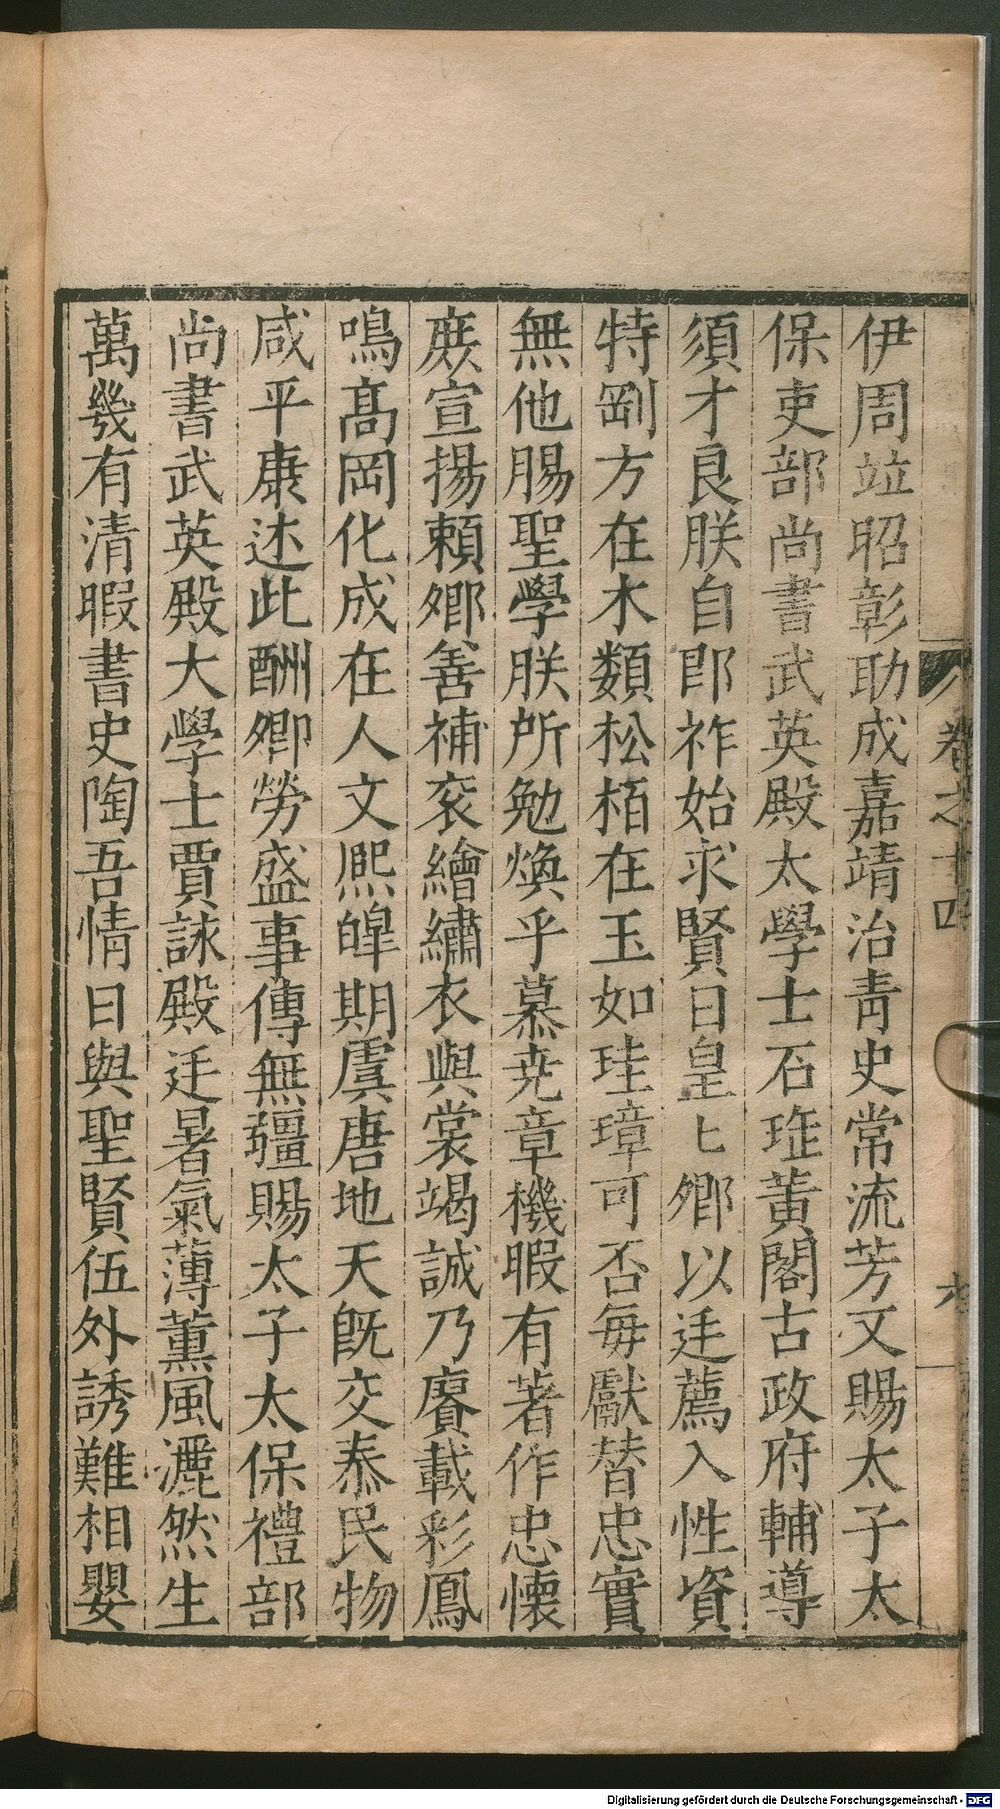 卷之十四
六
伊周竝昭彰助成嘉靖治青史常流芳又賜太子太
保吏部尚書武英殿太學士石珤黃閣古政府輔導
須才良朕自卽祚始求賢日皇匕鄉以廷薦入性資
特剛方在木類松栢在玉如珪璋可否每獻替忠實
無他腸聖學朕所勉煥乎慕尭章機暇有著作忠懷
庻宣揚賴鄉善補衮繪繡衣與裳竭誠乃賡載彩鳳
鳴髙岡化成在人文熈皥期虞唐地天旣交泰民物
咸平康述此酬卿勞盛事傳無疆賜太子太保禮部
尚書武英殿大學士賈詠殿廷暑氣薄薰風灑然生
萬幾有清暇書史陶吾情日與聖賢伍外誘難相嬰
Digitalisierung gefördert durch die Deutsche Forschungsgemeinschaft - DFG